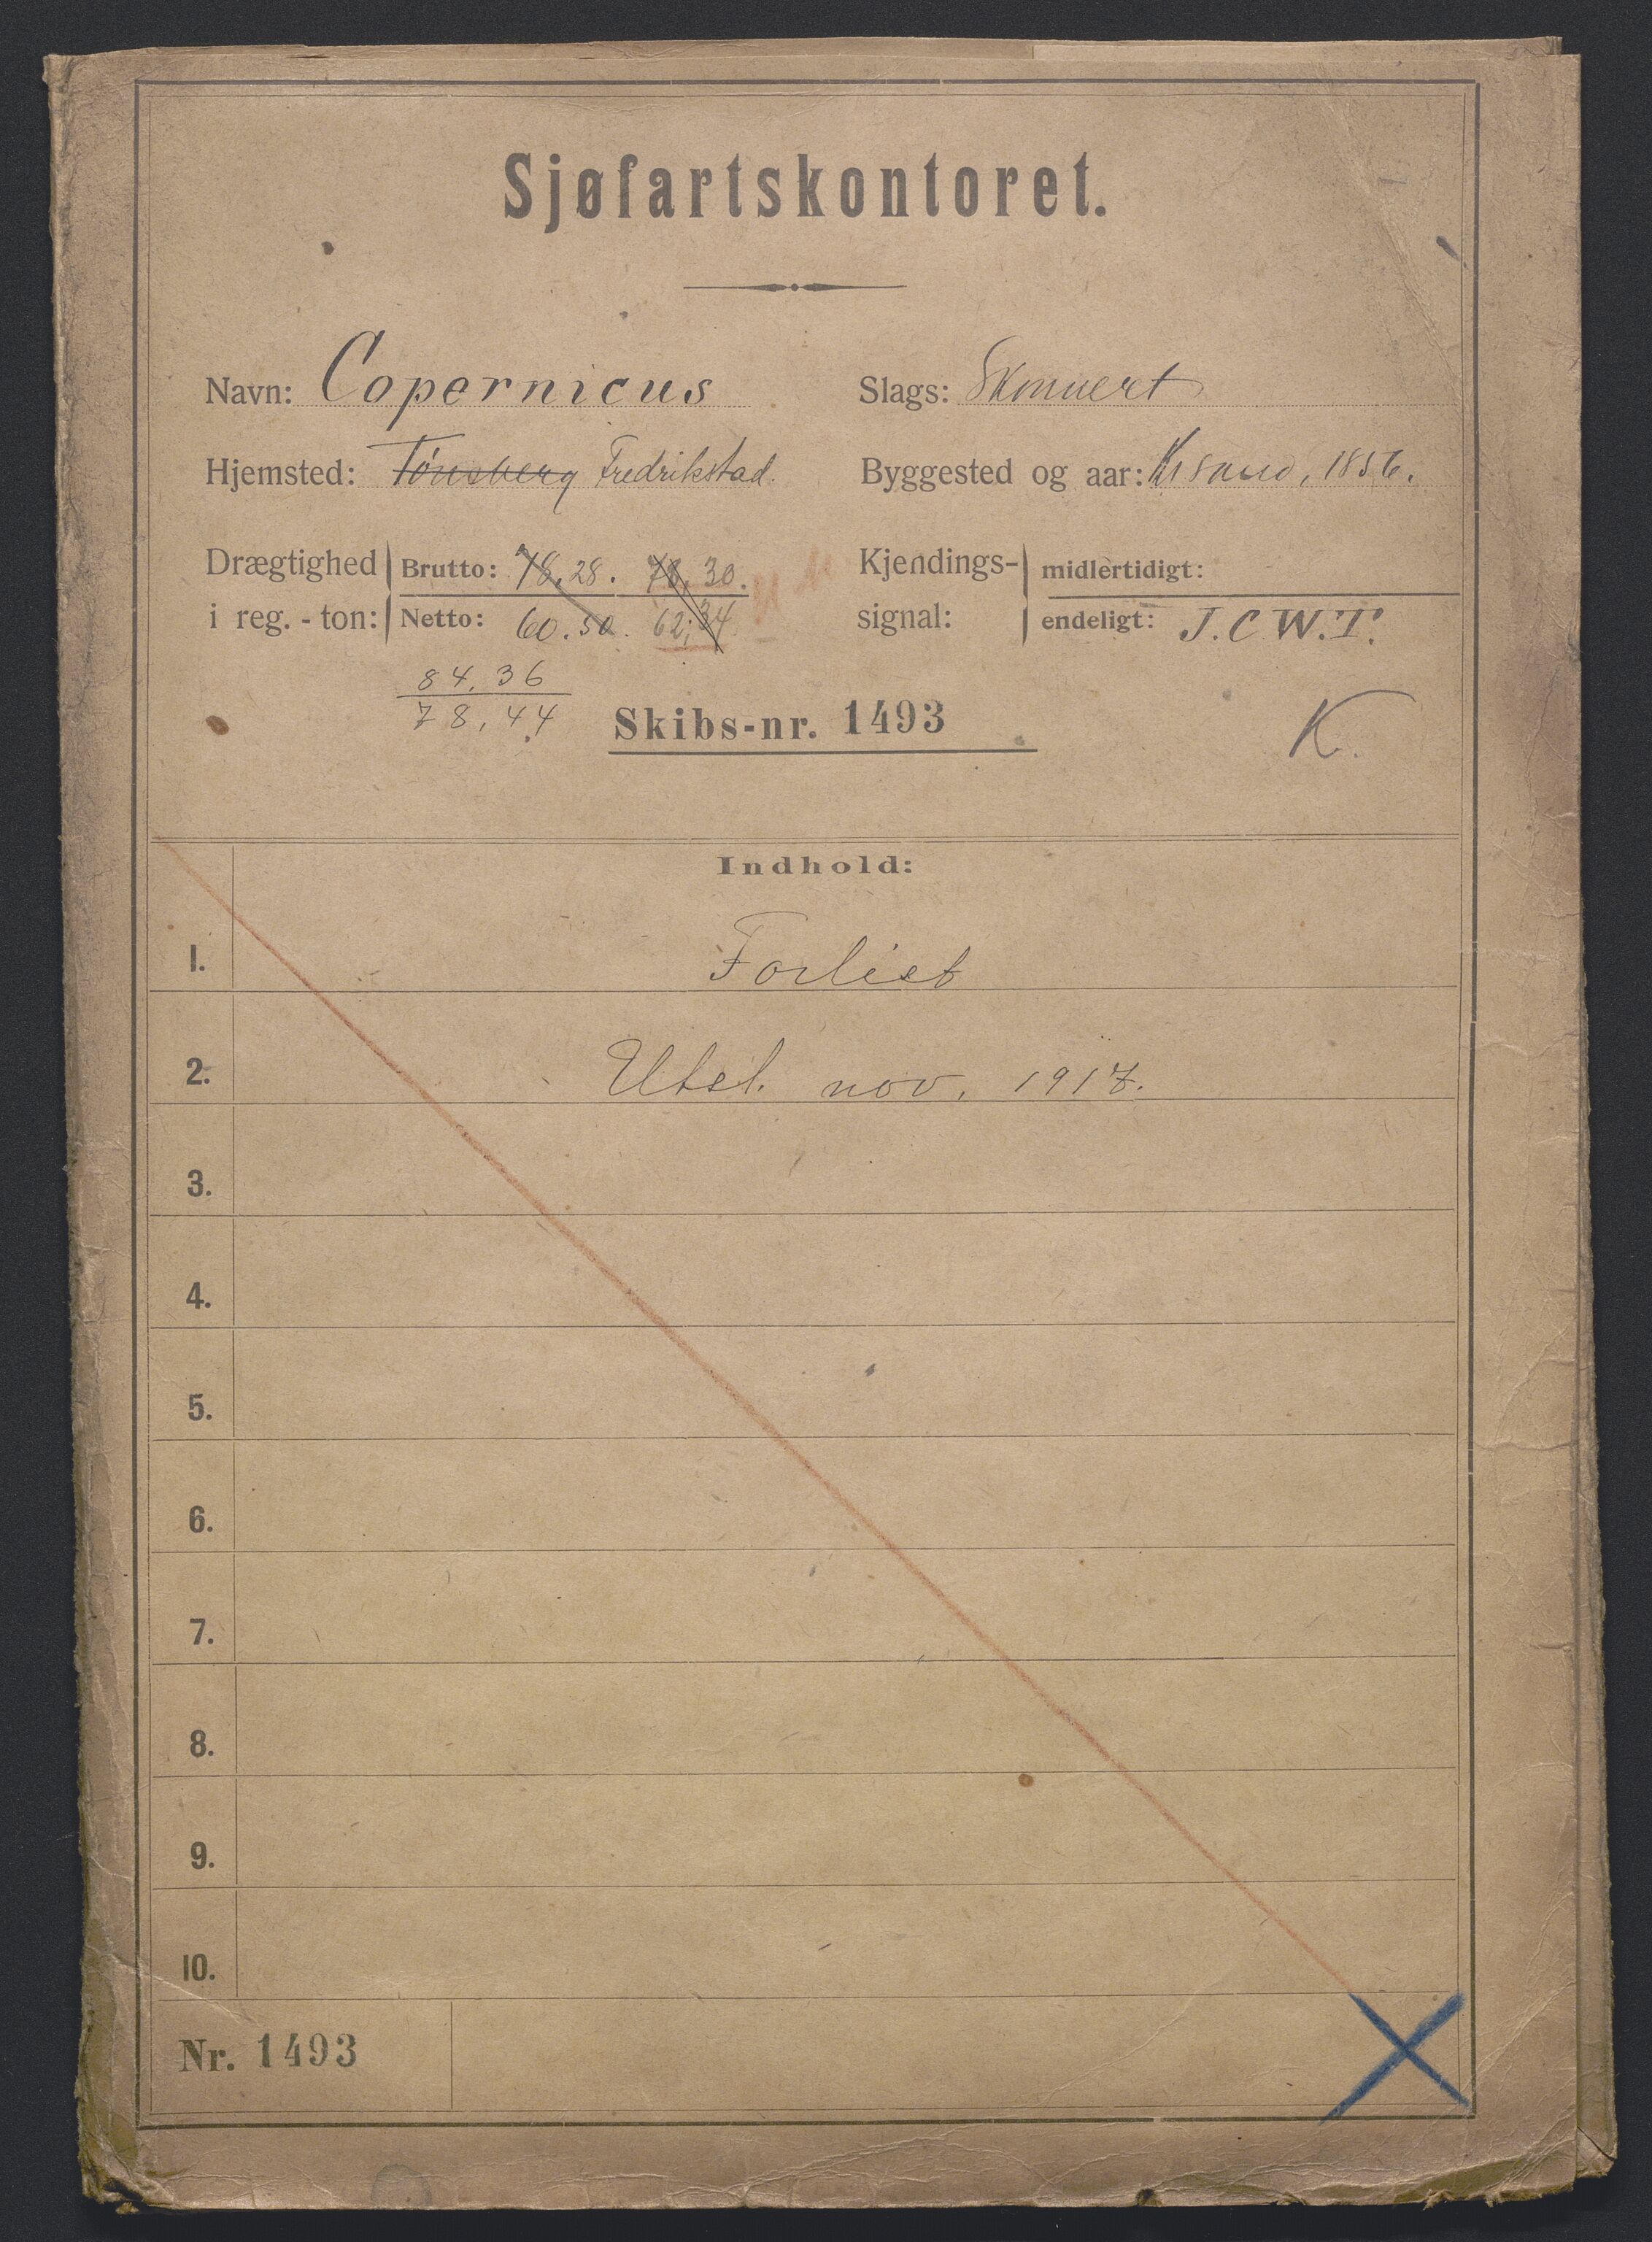 Sjøfartskontoret.
Navn: Copernicus
Slags: Skonnert
Hjemsted: Tønsberg Fredrikstad.
Byggested og aar: Krsand, 1856.
Drægtighed i reg.-ton:
Brutto: 78,28. 78,30.
Netto: 60.50. 62,34
84,36
78,44
Kjendings-signal:
midlertidigt:
endeligt: J.C.W.T.
Skibs-nr. 1493
K.
Indhold:
1. Forlist
2. Utsl. nov. 1917.
3.
4.
5.
6.
7.
8.
9.
10.
Nr. 1493